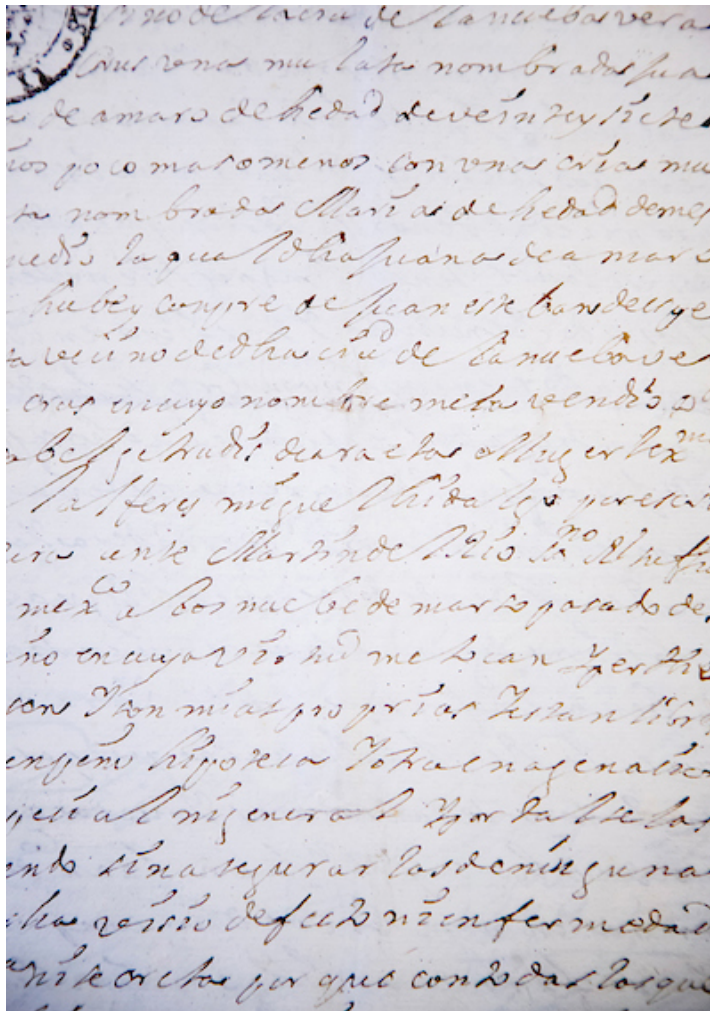 sino de la ciud de la nueba vera
Crus vna mulata nombrada jua
a de amaro de hedad de veinte y siete
ños poco mas o menos con vna cria mu
ta nombrada Maria de hedad de mes
medio la qual dha juana de amaro
hube y conpre de juan esteban de
ta vecino de dha ciud de la nueba ve
crus en cuyo nombre me la vendio Da
abel getrudis de Mug er lex ma
l alferes miguel hidalgo por escri
ura ante Martin del Rio
mex co a los nuebe de marso pasado de
ño en cuya virtud me tocan y perthe
cen y son mias proprias y estan libres
enpeno hipoteca y otra enagenasion
special ni general y por tal se las
endo sin asegurarlas de ninguna
cha visio defecto ni enfermedad
ni secreta por que con todas las que